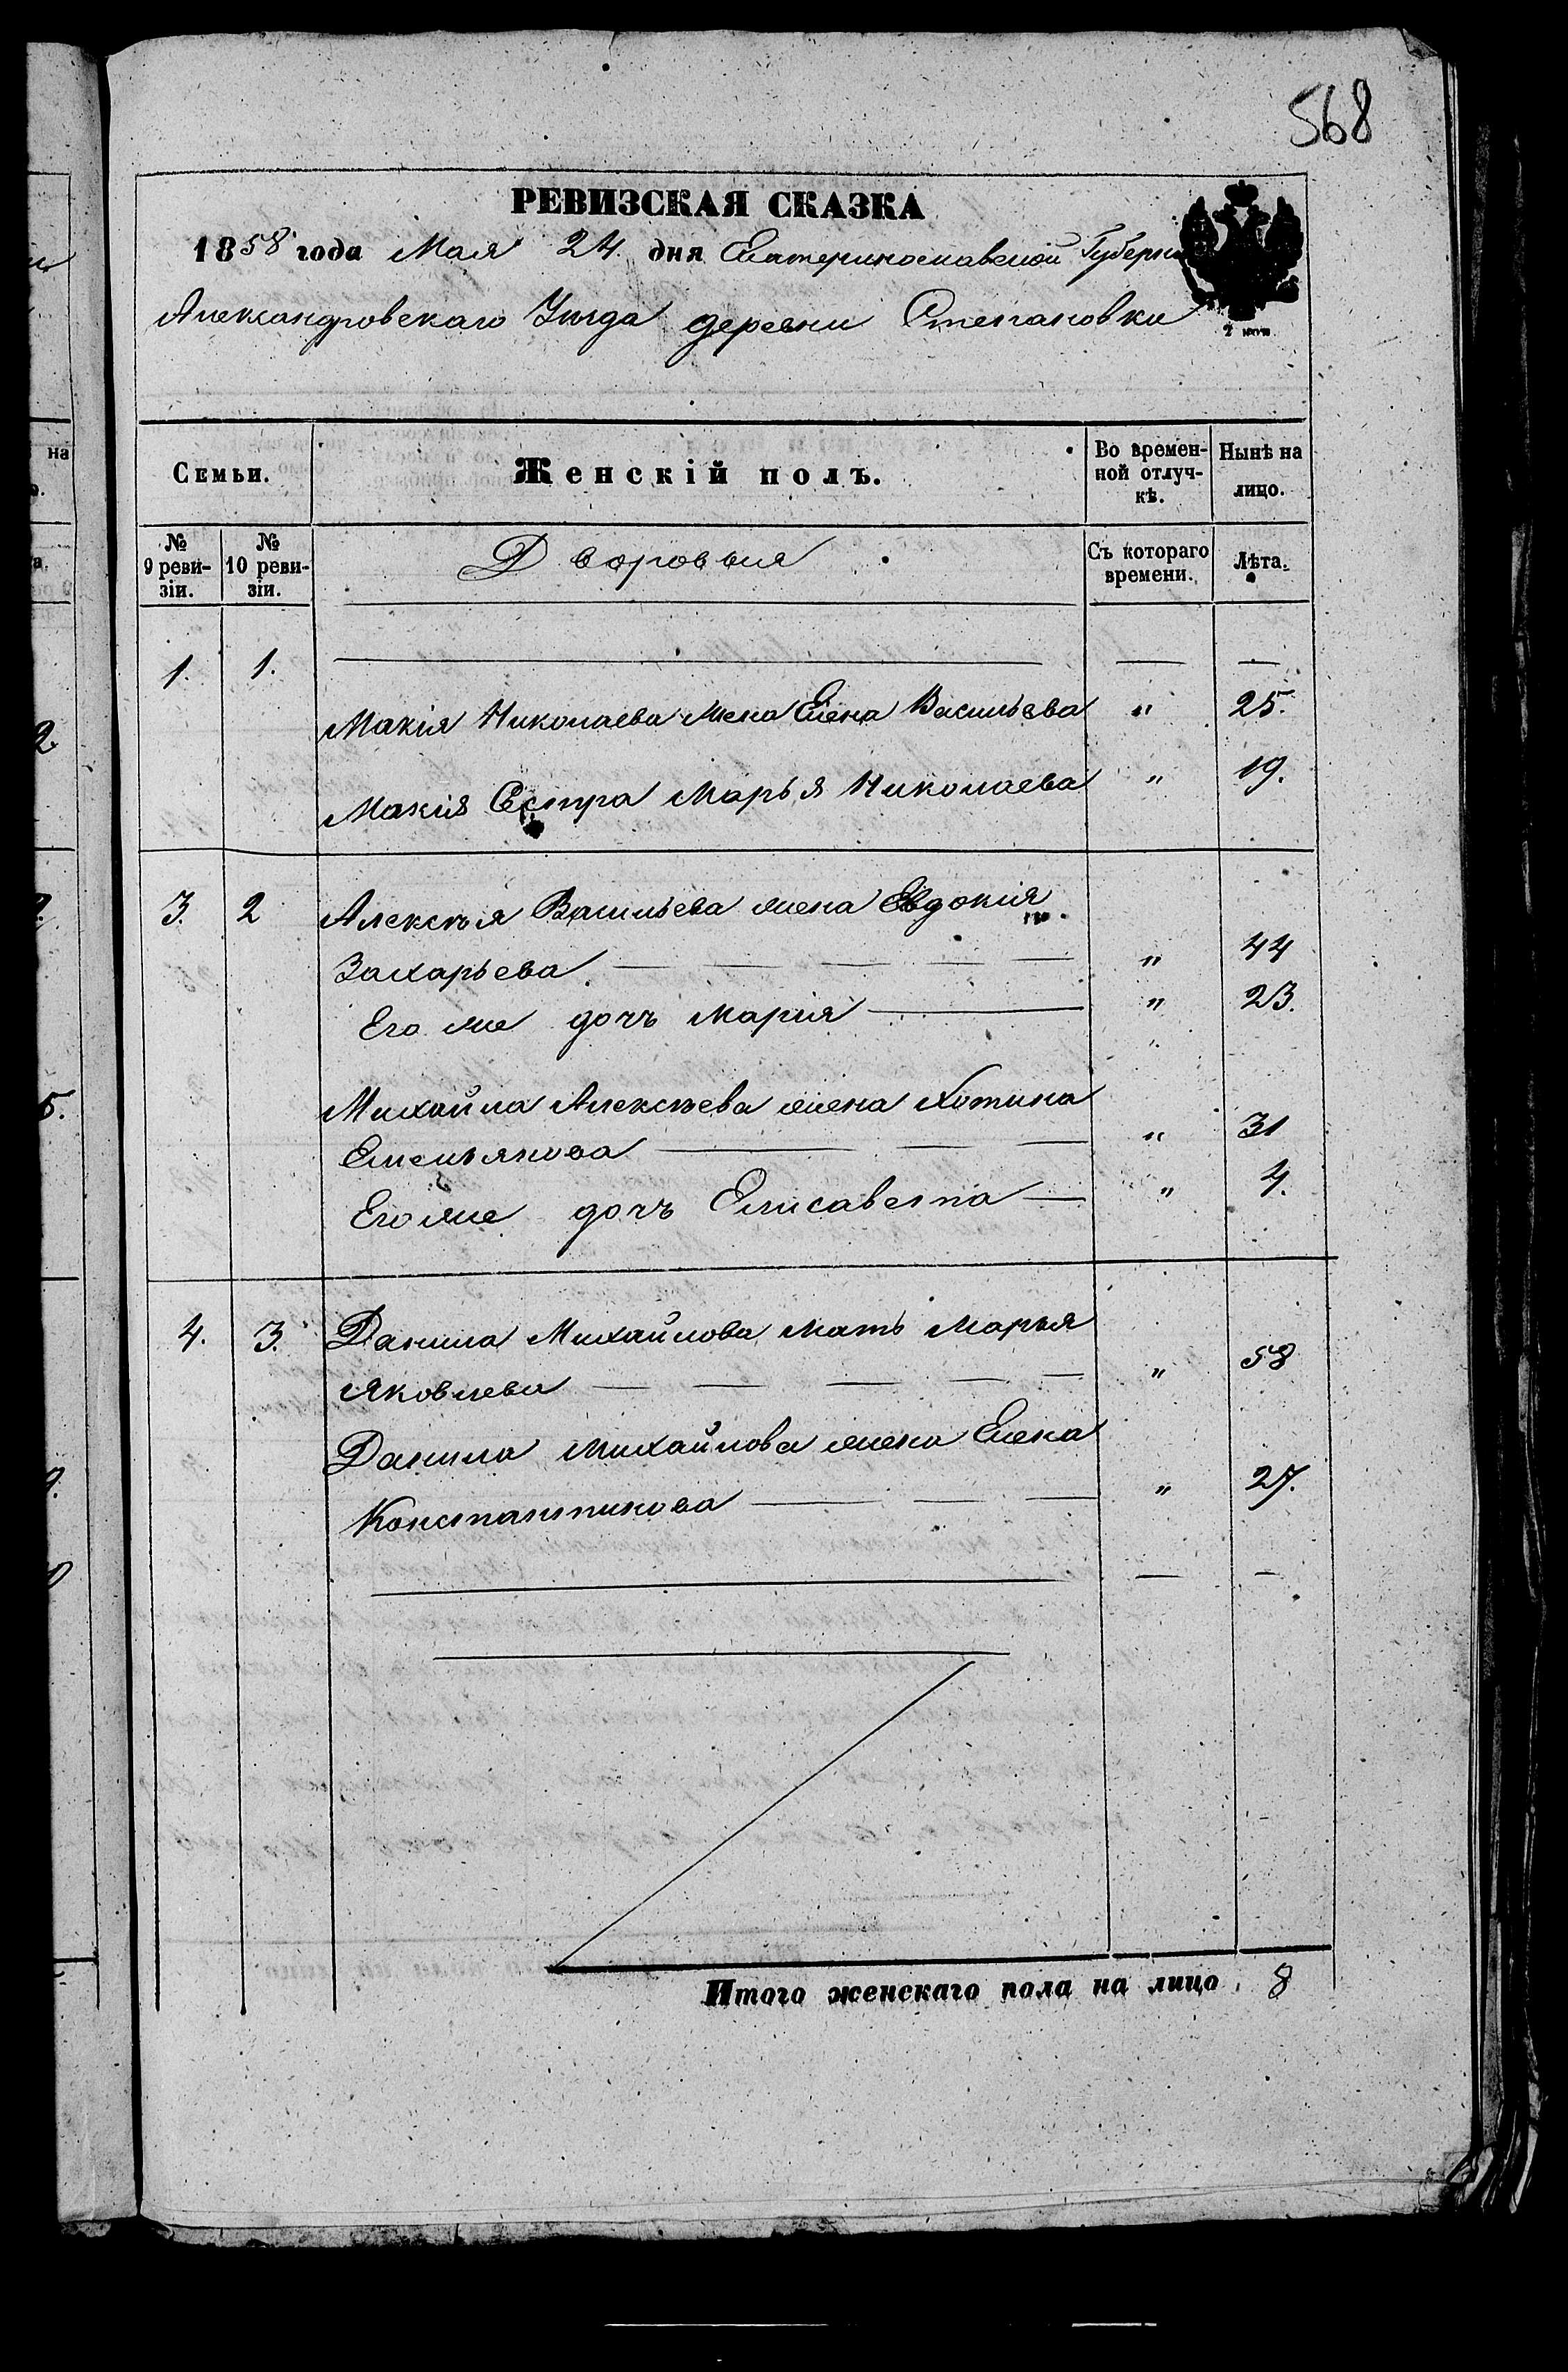 568
РЕВИЗСКАЯ СКАЗКА
1858 года Мая 24 дня Екатеринославской Губерніи
Александровскаго Уѣзда деревни Степановки
Семьи. Женскій полъ. Во временной отлучкѣ. Нынѣ на лицо.
№ 9 ревизіи. № 10 ревизіи. Дворовыя Съ котораго времени. Лѣта.
1. 1. — —
Макія Николаева жена Елена Васильева " 25.
Макія Сестра Марья Николаева " 19.
3. 2 Алексѣя Васильева жена Евдокія
Захарьева — — — — — " 44
Его же дочь Марія — " 23.
Михайла Алексѣева жена Хотина
Емельянова — — — " 31
Его же дочь Елисавета — " 4.
4. 3. Данила Михайлова мать Марья
Яковлева — — — — — " 58
Данила Михайлова жена Елена
Константинова — — — " 27.
Итого женскаго пола на лицо 8